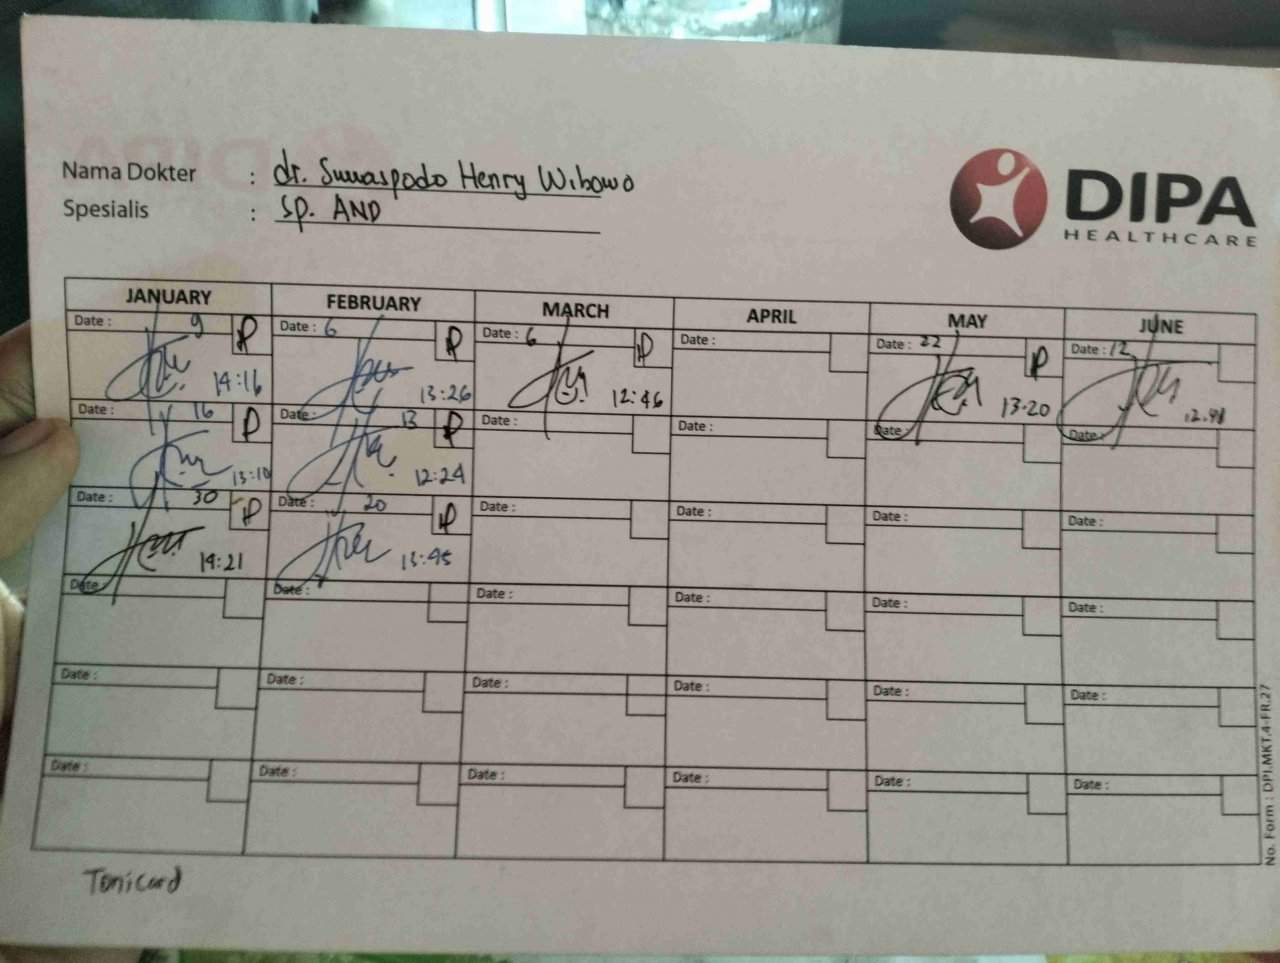 Nama Dokter : dr. Suwaspodo Henry Wibowo
Spesialis : Sp. AND
DIPA
HEALTHCARE
JANUARY FEBRUARY MARCH APRIL MAY JUNE
Date : 9 P Date : 6 P Date : 6 P Date : Date : 22 P Date : 12
14:16 13:26 12:46 13.20
Date : 16 P Date : 13 P Date : Date : Date : Date :
13:10 12:24
Date : 30 P Date : 20 P Date : Date : Date : Date :
14:21 13:45
Date : Date : Date : Date : Date : Date :
Date : Date : Date : Date : Date : Date :
Date : Date : Date : Date : Date : Date :
No. Form : DPI.MKT.4-FR.27
Tonicard